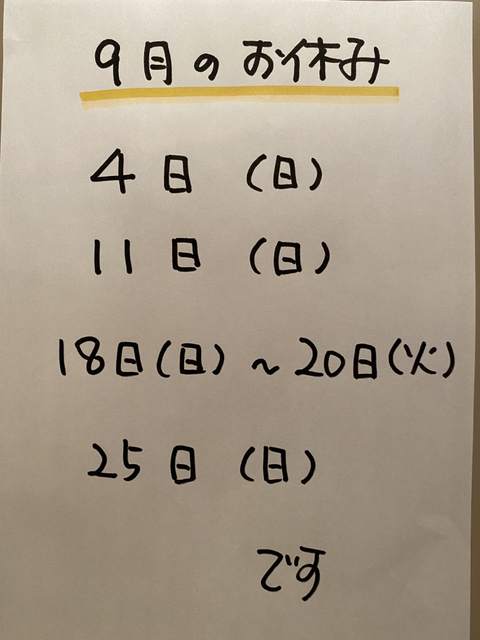 9月のお休み
4日（日）
11日（日）
18日（日）～20日（火）
25日（日）
です